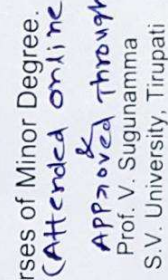 rses of Minor Degree.
(Attended online
&
Approved through
Prof. V. Sugunamma
S.V. University, Tirupati